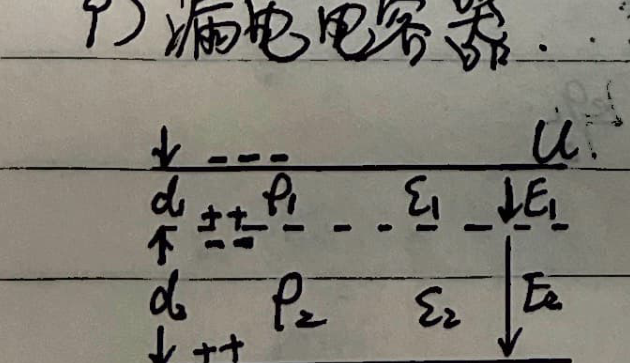 9) 漏电电容器.
↓ --- U.
d₁ ++ ρ₁ ε₁ ↓E₁
↑ --
d₂ ρ₂ ε₂ E₂
↓ ++